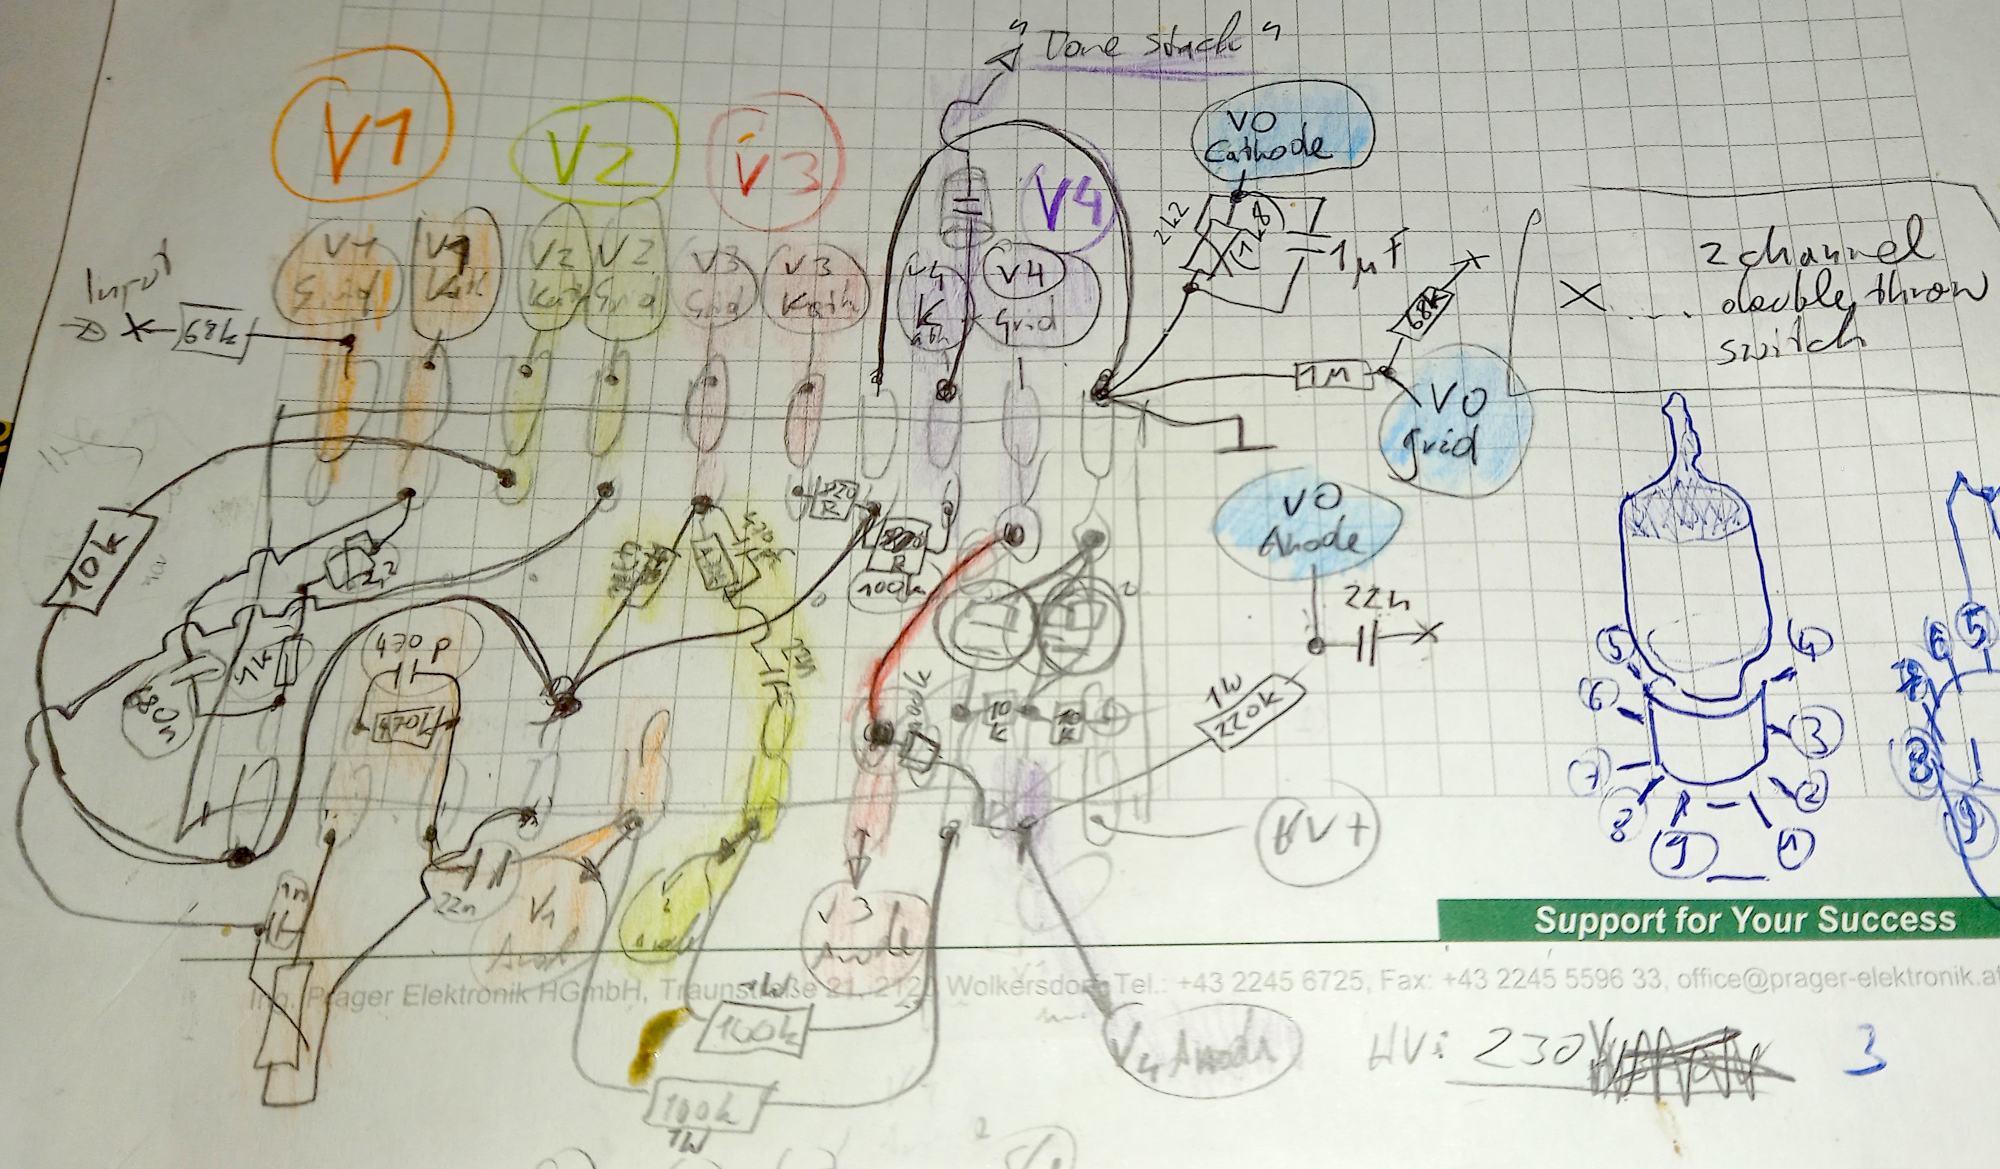 "Tone stack"
V1
V2
V3
V4
VO
Cathode
2k2
1k8
1µF
68k
2 channel
X.... double throw
switch
Input
68k
V1
Grid
V1
Kath
V2
Kath
V2
Grid
V3
Grid
V3
Kath
V4
Kath
V4
Grid
1M
VO
grid
VO
Anode
22n
10k
2k2
1k
680n
470p
470k
820
R
R
100k
22n
100k
10
k
10
k
1W
220k
HV+
1n
22n
V1
Anod
V3
Anode
1W
100k
100k
1W
V4 Anode
HV: 230V
3
5
4
6
3
7
2
8
9
1
5
6
7
8
9
Support for Your Success
Ing. Prager Elektronik HGmbH, Traunstraße 21, 2120 Wolkersdorf, Tel.: +43 2245 6725, Fax: +43 2245 5596 33, office@prager-elektronik.at